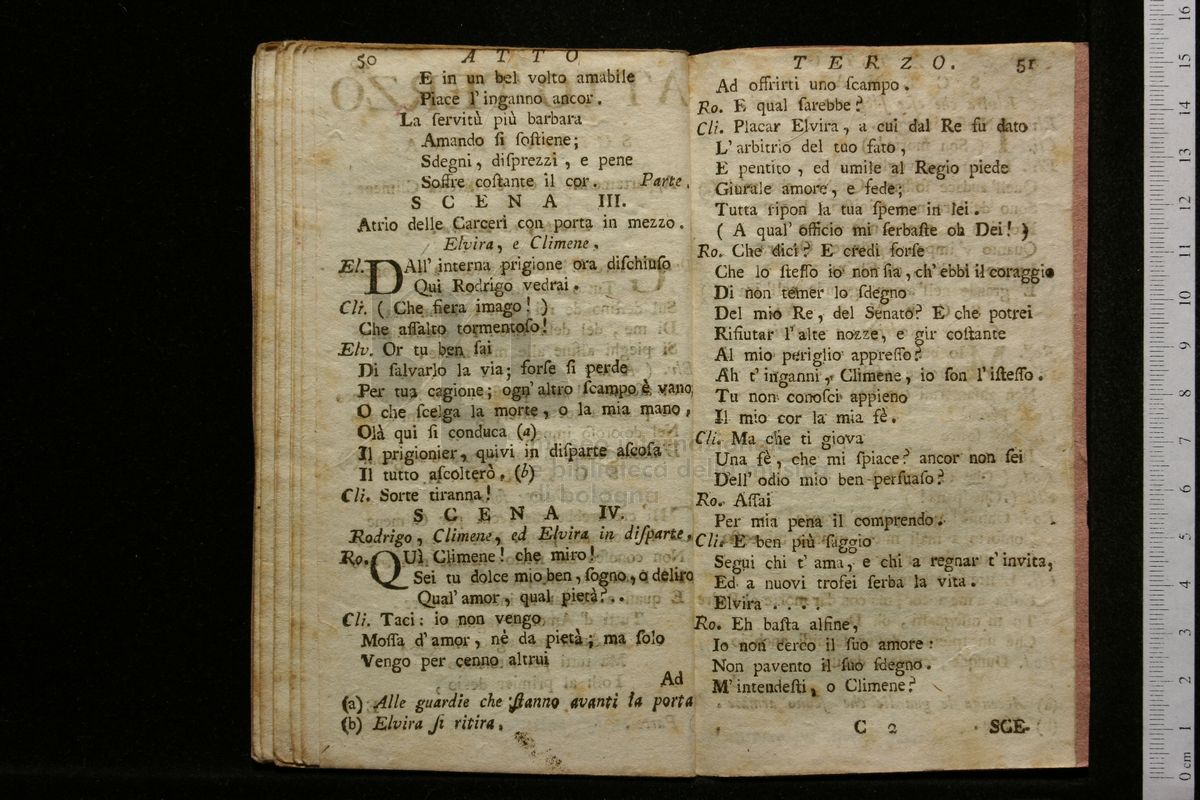 50 ATTO
E in un bel volto amabile
Piace l' inganno ancor.
La ſervitù più barbara
Amando ſi ſoſtiene;
Sdegni, diſprezzi, e pene
Soffre coſtante il cor. Parte.
SCENA III.
Atrio delle Carceri con porta in mezzo.
Elvira, e Climene.
El. DAll' interna prigione ora diſchiuſo
Qui Rodrigo vedrai.
Cli. ( Che fiera imago! )
Che aſſalto tormentoſo!
Elv. Or tu ben ſai
Di ſalvarlo la via; forſe ſi perde
Per tua cagione; ogn' altro ſcampo è vano
O che ſcelga la morte, o la mia mano,
Olà qui ſi conduca (a)
Il prigionier, quivi in diſparte aſcoſa
Il tutto aſcolterò. (b)
Cli. Sorte tiranna!
SCENA IV.
Rodrigo, Climene, ed Elvira in diſparte.
Ro. QUì Climene! che miro!
Sei tu dolce mio ben, ſogno, o deliro
Qual' amor, qual pietà?..
Cli. Taci: io non vengo
Moſſa d' amor, nè da pietà; ma ſolo
Vengo per cenno altrui
Ad
(a) Alle guardie che ſtanno avanti la porta
(b) Elvira ſi ritira.
TERZO. 51
Ad offrirti uno ſcampo.
Ro. E qual ſarebbe?
Cli. Placar Elvira, a cui dal Re fu dato
L' arbitrio del tuo fato,
E pentito, ed umile al Regio piede
Giurale amore, e fede;
Tutta ripon la tua ſpeme in lei.
( A qual' officio mi ſerbaſte oh Dei! )
Ro. Che dici? E credi forſe
Che lo ſteſſo io non ſia, ch' ebbi il coraggio
Di non temer lo ſdegno
Del mio Re, del Senato? E che potrei
Rifiutar l' alte nozze, e gir coſtante
Al mio periglio appreſſo?
Ah t' inganni, Climene, io ſon l' iſteſſo.
Tu non conoſci appieno
Il mio cor la mia fè.
Cli. Ma che ti giova
Una fè, che mi ſpiace? ancor non ſei
Dell' odio mio ben perſuaſo?
Ro. Aſſai
Per mia pena il comprendo.
Cli. E ben più ſaggio
Segui chi t' ama, e chi a regnar t' invita,
Ed a nuovi trofei ſerba la vita.
Elvira . . . .
Ro. Eh baſta alfine,
Io non cerco il ſuo amore:
Non pavento il ſuo ſdegno.
M' intendeſti, o Climene?
C 2 SCE-